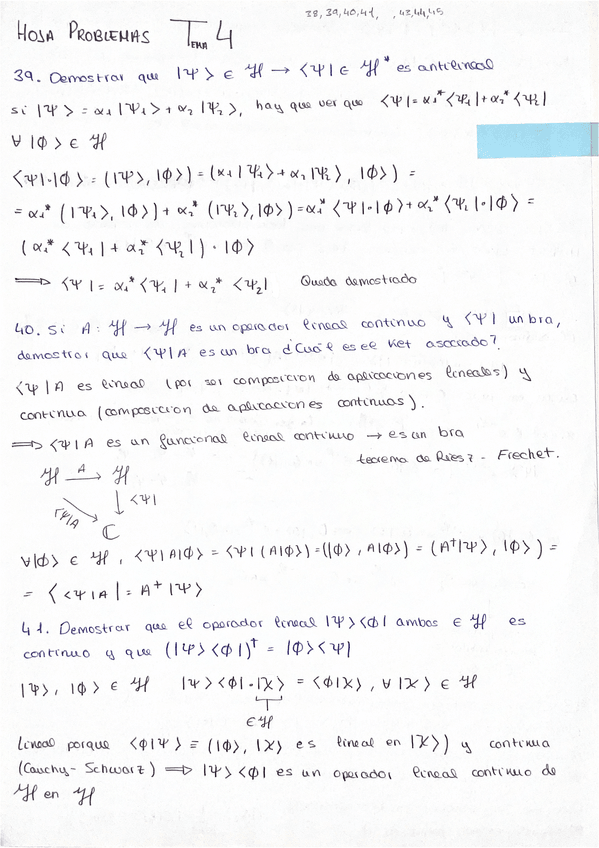 38, 39, 40, 41, , 43, 44, 45
HOJA PROBLEMAS TEMA 4
39. Demostrar que |Ψ> ∈ ℋ → <Ψ| ∈ ℋ* es antilineal
si |Ψ> = α₁|Ψ₁> + α₂|Ψ₂>, hay que ver que <Ψ| = α₁*<Ψ₁| + α₂*<Ψ₂|
∀ |Φ> ∈ ℋ
<Ψ|·|Φ> = (|Ψ>, |Φ>) = (α₁|Ψ₁> + α₂|Ψ₂>, |Φ>) =
= α₁* (|Ψ₁>, |Φ>) + α₂* (|Ψ₂>, |Φ>) = α₁* <Ψ₁|·|Φ> + α₂* <Ψ₂|·|Φ> =
(α₁* <Ψ₁| + α₂* <Ψ₂|) · |Φ>
⟹ <Ψ| = α₁* <Ψ₁| + α₂* <Ψ₂| Queda demostrado
40. Si A: ℋ → ℋ es un operador lineal continuo y <Ψ| un bra,
demostrar que <Ψ|A es un bra ¿Cuál es el Ket asociado?
<Ψ|A es lineal (por ser composicion de aplicaciones lineales) y
continua (composicion de aplicaciones continuas).
⟹ <Ψ|A es un funcional lineal continuo → es un bra
teorema de Riesz - Frechet.
ℋ A→ ℋ
<Ψ|A ↓ <Ψ|
ℂ
∀|Φ> ∈ ℋ, <Ψ|A|Φ> = <Ψ|(A|Φ>) = (|Φ>, A|Φ>) = (A†|Ψ>, |Φ>) =
= < <Ψ|A| = A†|Ψ>
41. Demostrar que el operador lineal |Ψ><Φ| ambos ∈ ℋ es
continuo y que (|Ψ><Φ|)† = |Φ><Ψ|
|Ψ>, |Φ> ∈ ℋ |Ψ><Φ|·|χ> = <Φ|χ>, ∀ |χ> ∈ ℋ
∈ ℋ
Lineal porque <Φ|Ψ> ≡ (|Φ>, |χ> es lineal en |χ>) y continua
(Cauchy-Schwarz) ⟹ |Ψ><Φ| es un operador lineal continuo de
ℋ en ℋ